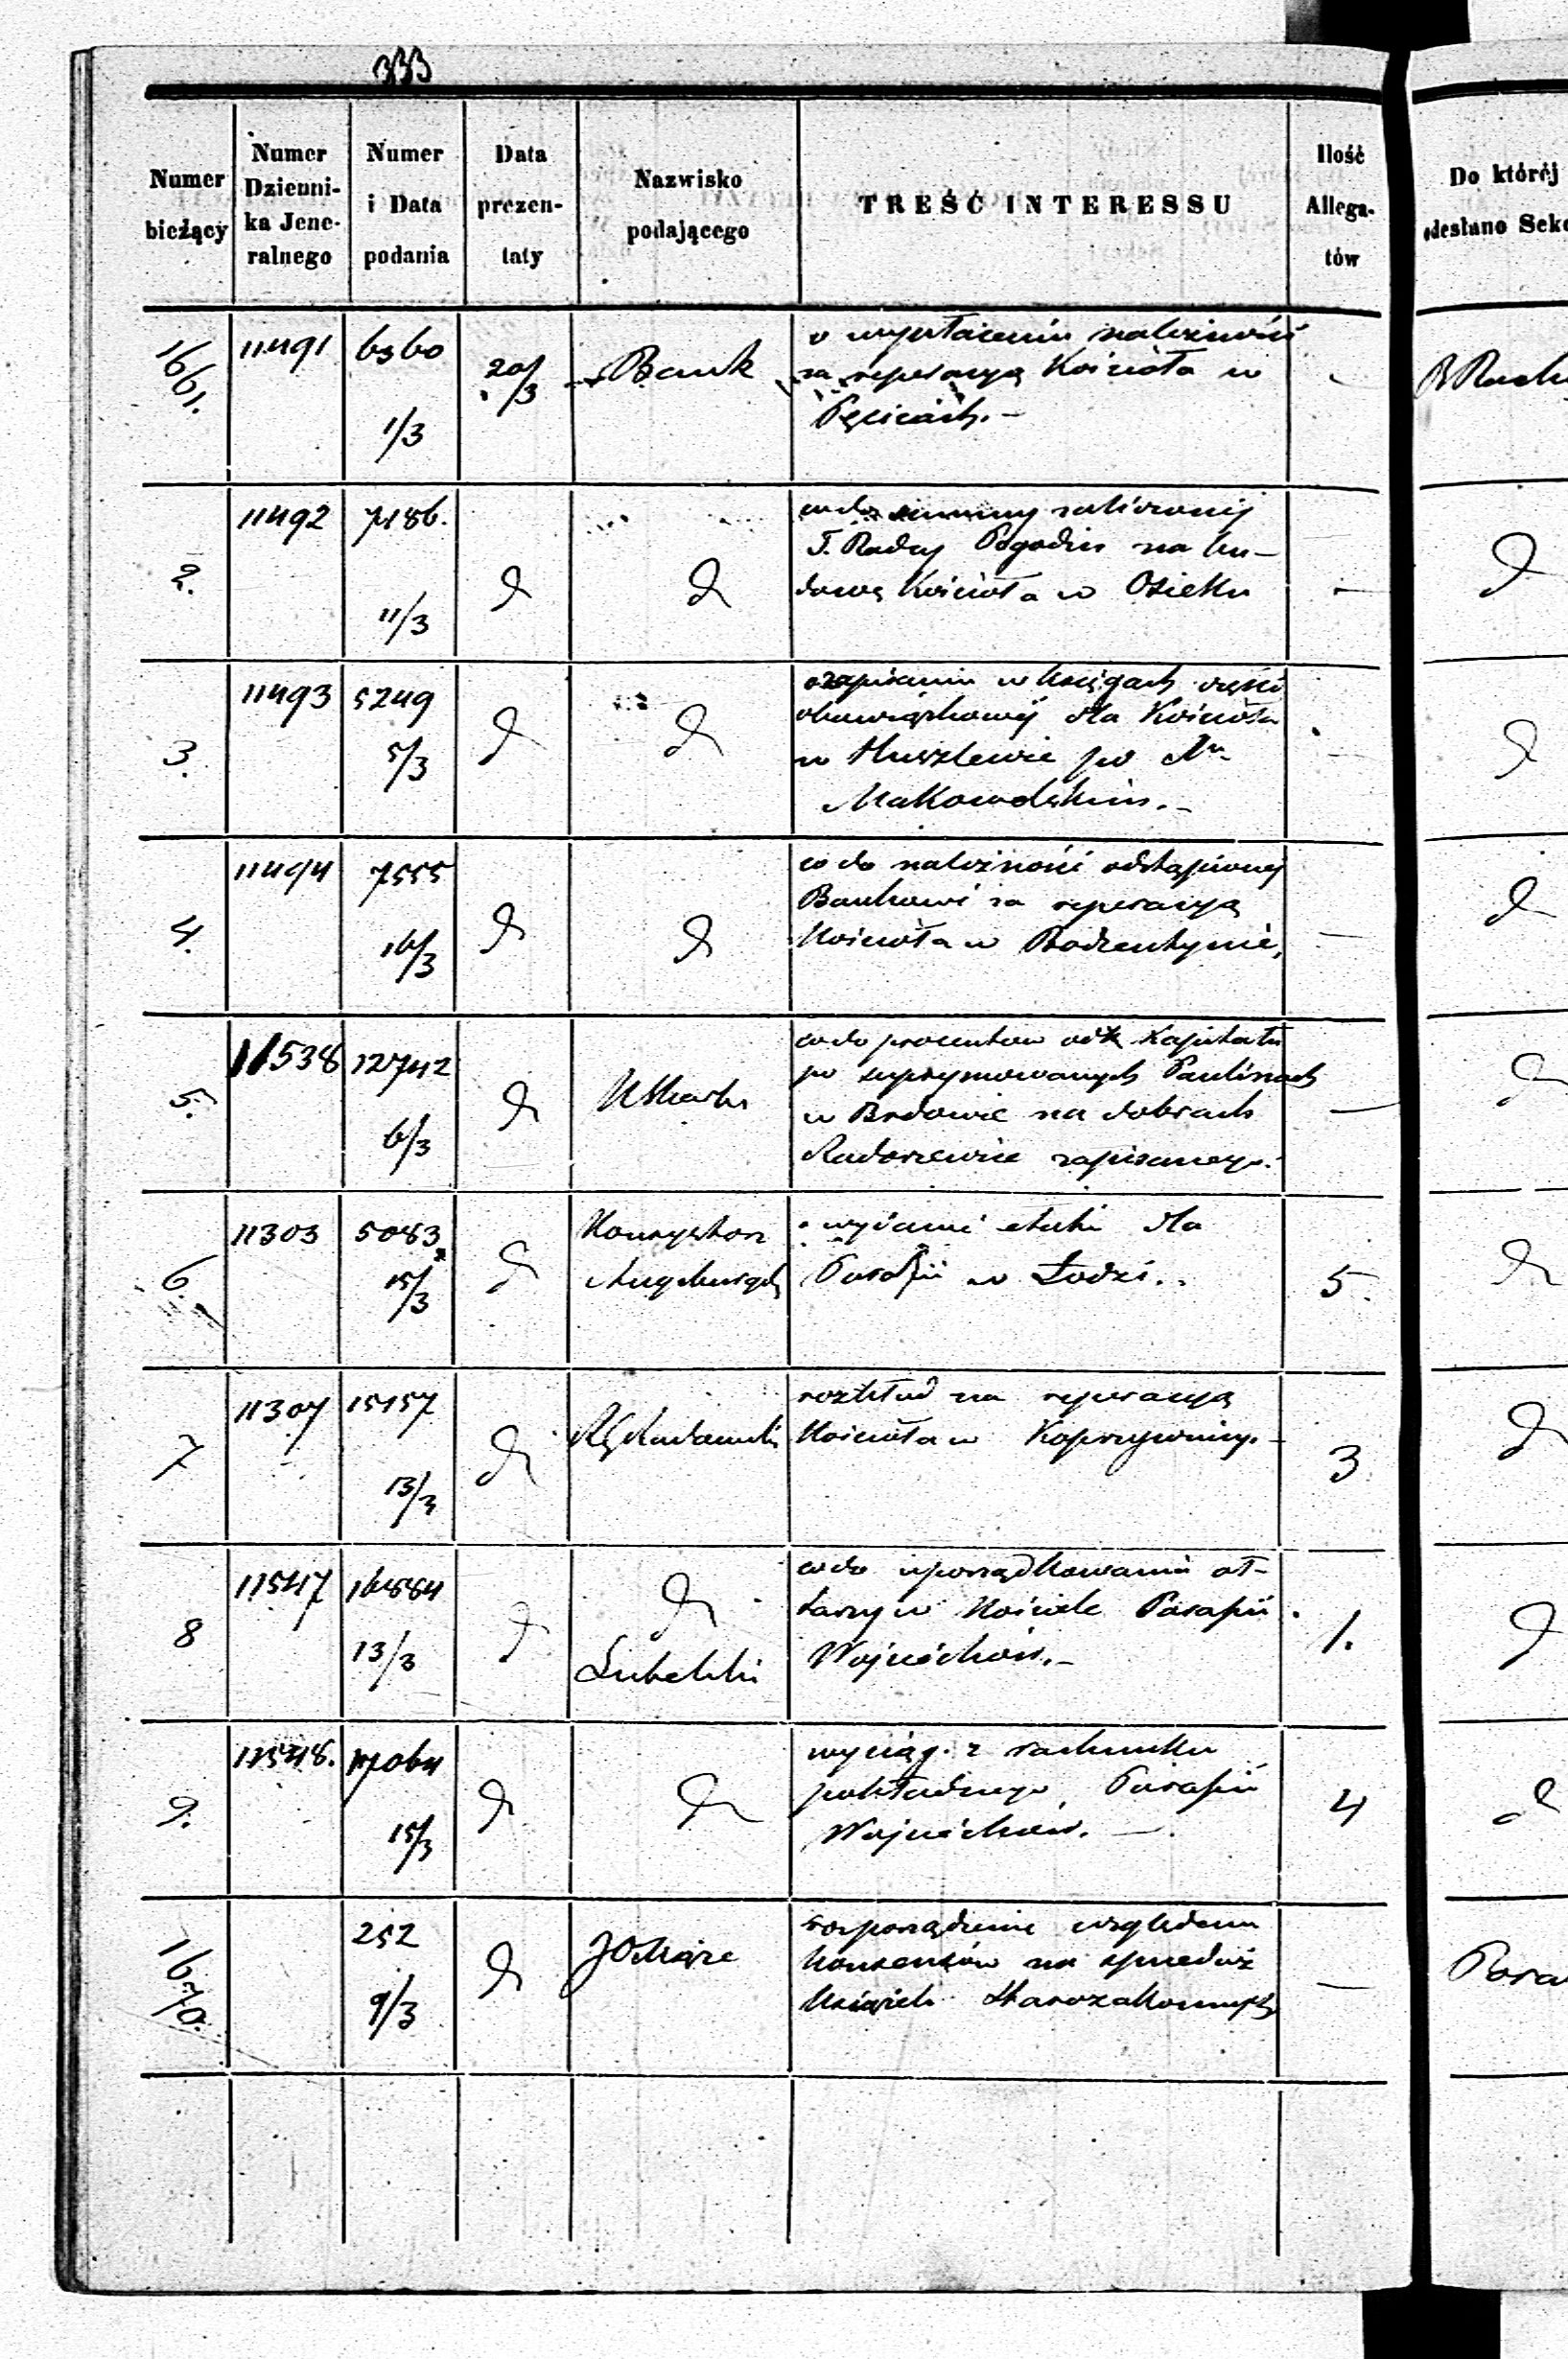 333
Numer bieżący | Numer Dziennika Jeneralnego | Numer i Data podania | Data prezentaty | Nazwisko podającego | TREŚĆ INTERESSU | Ilość Allegatów | Do któréj odesłano Sek
1661. | 11491 | 6360 1/3 | 20/3 | Bank | o wypłacenie należności
za reperacyą Kościoła w
Pęcicach.—
2. | 11492 | 7186. 11/3 | d | d | co do summy zaliczonej | — | d
T. Radcy Pogodin na bu-
dowę Kościoła w Osieku
3. | 11493 | 5249 5/3 | d | d | o zapisanie w księgach części | — | d
obowiązkowéj dla Kościoła
w Huszlewie po
Makowskim.—
4. | 11494 | 7555 16/3 | d | d | co do należności odstąpionej | — | d
Bankowi za reperacyą
Kościoła w Bodzentynie,
5. | 11538 | 12742 6/3 | d | co do procentow od Kapitału | — | d
po supprymowanych Paulinach
w Brdowie na dobrach
Radoszewice zapisanego.
6. | 11303 | 5083 15/3 | d | Konsystorz | wydanie etatu dla | 5. | d
Augsburgski | Parafii w Łodzi.
7 | 11307 | 15157 13/3 | d | RGRadomski | rozkład na reperacyą | 3 | d
Kościoła w Koprzywnicy.—
8 | 11547 | 16884 13/3 | d | d | co do uporządkowania oł- | 1. | d
tarzy w Kościele Parafii
Lubelski | Wojciechów.—
9. | 11548. | 17064 15/3 | d | d | wyciąg z rachunku | 4 | d
pokładnego Parafii
Wojciechów.—
1670. | 252 9/3 | d | rozporządzenie względem | —
konsensów na sprzedaż
książek Starozakonnych